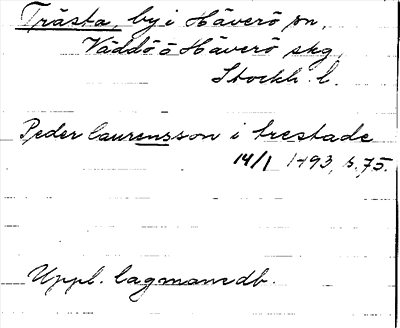 Trästa, by i Häverö sn,
Väddö ö Häverö skg,
Stockh. l.
Peder laurensson i trestade
14/1 1493, s. 75.
Uppl. lagmansdb.